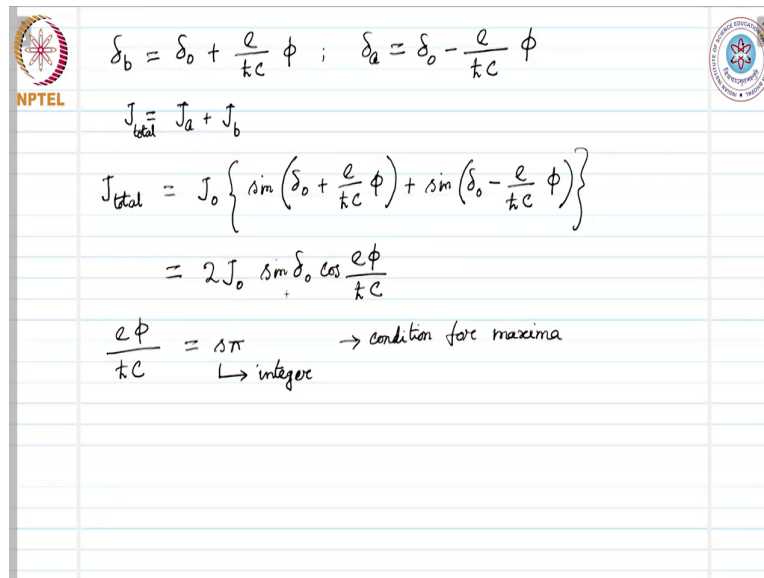 δ_b = δ_0 + e/ħc φ ; δ_a = δ_0 - e/ħc φ
NPTEL
J_total = J_a + J_b
J_total = J_0 { sin (δ_0 + e/ħc φ) + sin (δ_0 - e/ħc φ) }
= 2J_0 sin δ_0 cos eφ/ħc
eφ/ħc = sπ → condition for maxima
↳ integer